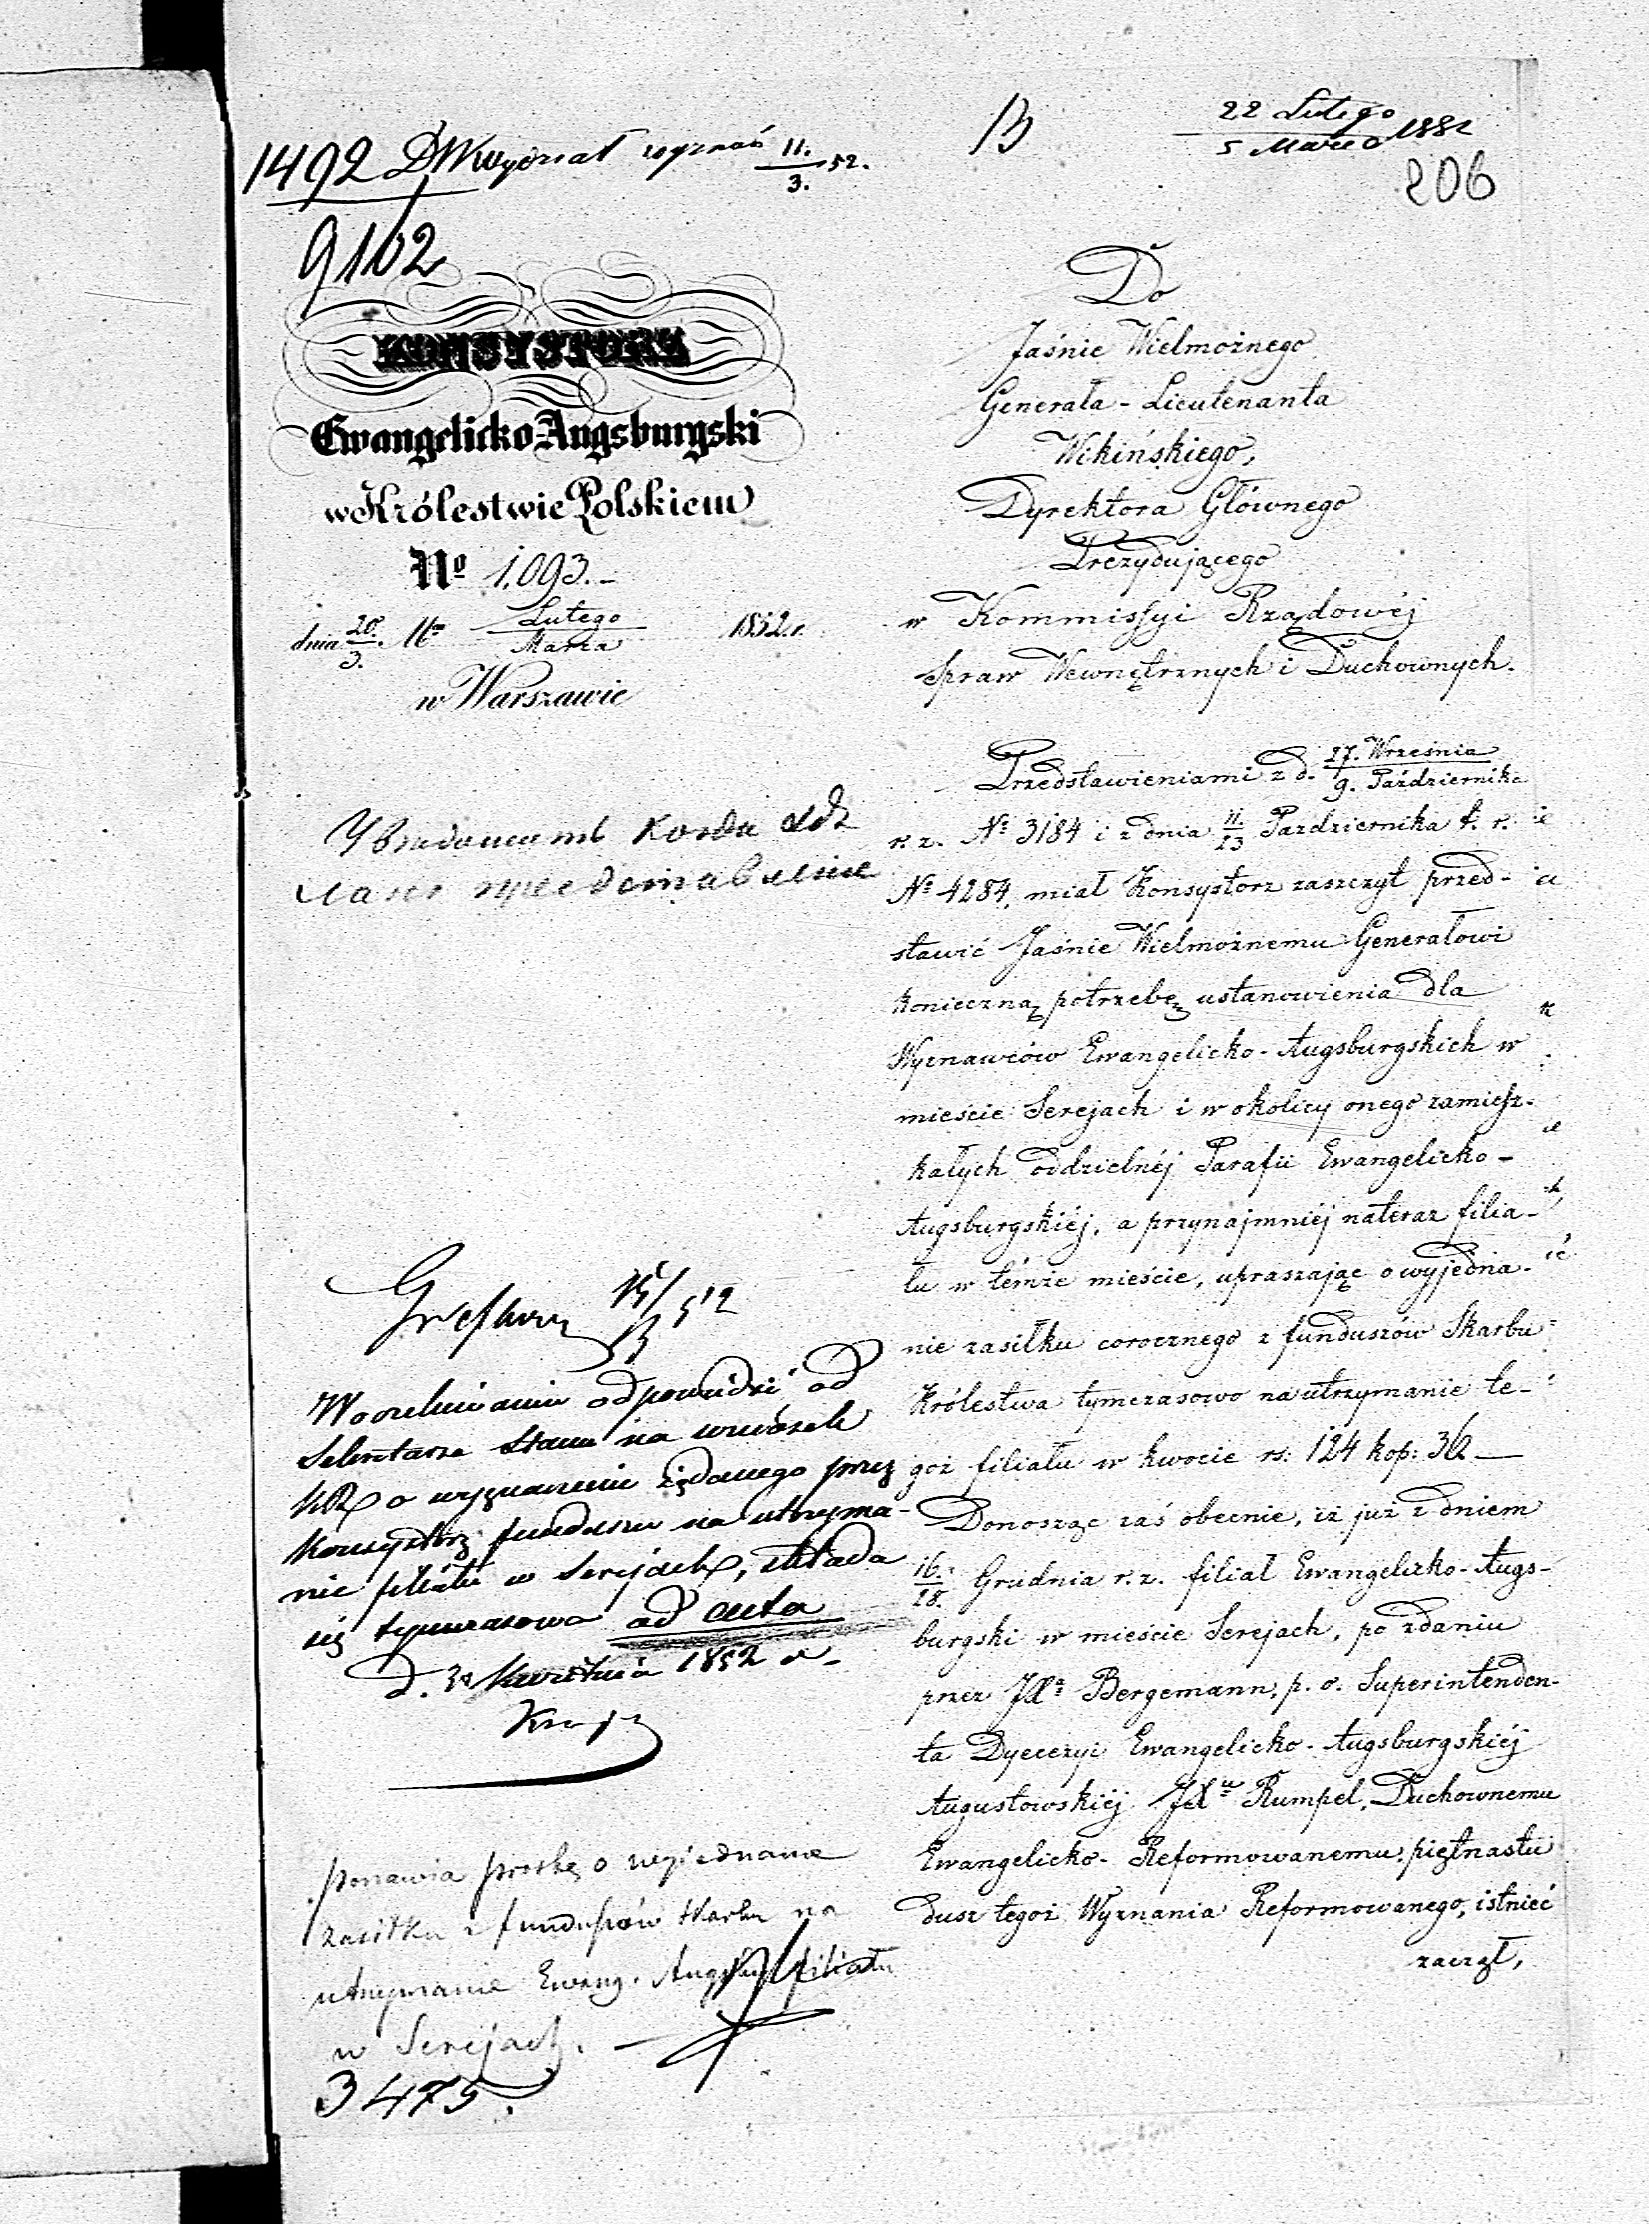 1492 DW Wydział wyznań 11./3. 52.
B
22 Lutego
5 Marca 1852
206
9102
KONSYSTORZ
Ewangelicko-Augsburgski
w Królestwie Polskiem
No 1,093.-
dnia 20./3. Lutego/Marca 1852 r.
w Warszawie
Do
Jaśnie Wielmożnego
Generała-Lieutenanta
Wikińskiego,
Dyrektora Głównego
Prezydującego
w Kommissyi Rządowéj
Spraw Wewnętrznych i Duchownych.
Przedstawieniami z d. 27. Września/9. Października
r. z. No 3184 i z dnia 11/23 Pazdziernika t. r.
No 4284, miał Konsystorz zaszczyt przed-
stawić Jaśnie Wielmożnemu Generałowi
konieczną potrzebę ustanowienia dla
Wyznawców Ewangelicko-Augsburgskich w
mieście Serejach i w okolicy onego zamiesz-
kałych oddzielnéj Parafii Ewangelicko-
Augsburgskiéj, a przynajmniéj nateraz filia-
łu w témże mieście, upraszając o wyjedna-
nie zasiłku corocznego z funduszów Skarbu
Królestwa tymczasowo na utrzymanie te-
goż filiału w kwocie rs. 124 kop: 36 —
Donosząc zaś obecnie, iż już z dniem
16./28. Grudnia r. z. filiał Ewangelicko-Augs-
burgski w mieście Serejach, po zdaniu
przez JXa Bergemann, p. o. Superintenden-
ta Dyecezyi Ewangelicko-Augsburgskiéj
Augustowskiéj JXu Rumpel, Duchownemu
Ewangelicko-Reformowanemu, piętnastu
dusz tegoż Wyznania Reformowanego, istnieć
zaczął,
W oczekiwaniu odpowiedzi od
Sekretarza Stanu na wniosek
KR o wyznaczenie żądanego przez
Konsystorz funduszu na utrzyma-
nie filiału w Serejach, składa
się tymczasowo ad acta
d. Kwietnia 1852 r.
ponawia prośbę o wyjednanie
zasiłku z funduszów Skarbu na
utrzymanie Ewang. Augsb. filiału
w Serejach. —
3475.